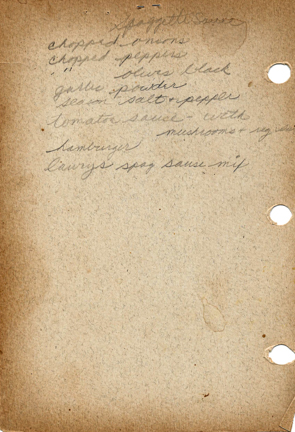 Spaggetti Sauce
chopped onions
chopped peppers
" " olives black
garlic powder
season salt + pepper
tomatoe sauce - with
mushrooms + reg
hamburger
Lawrys spag sause mix